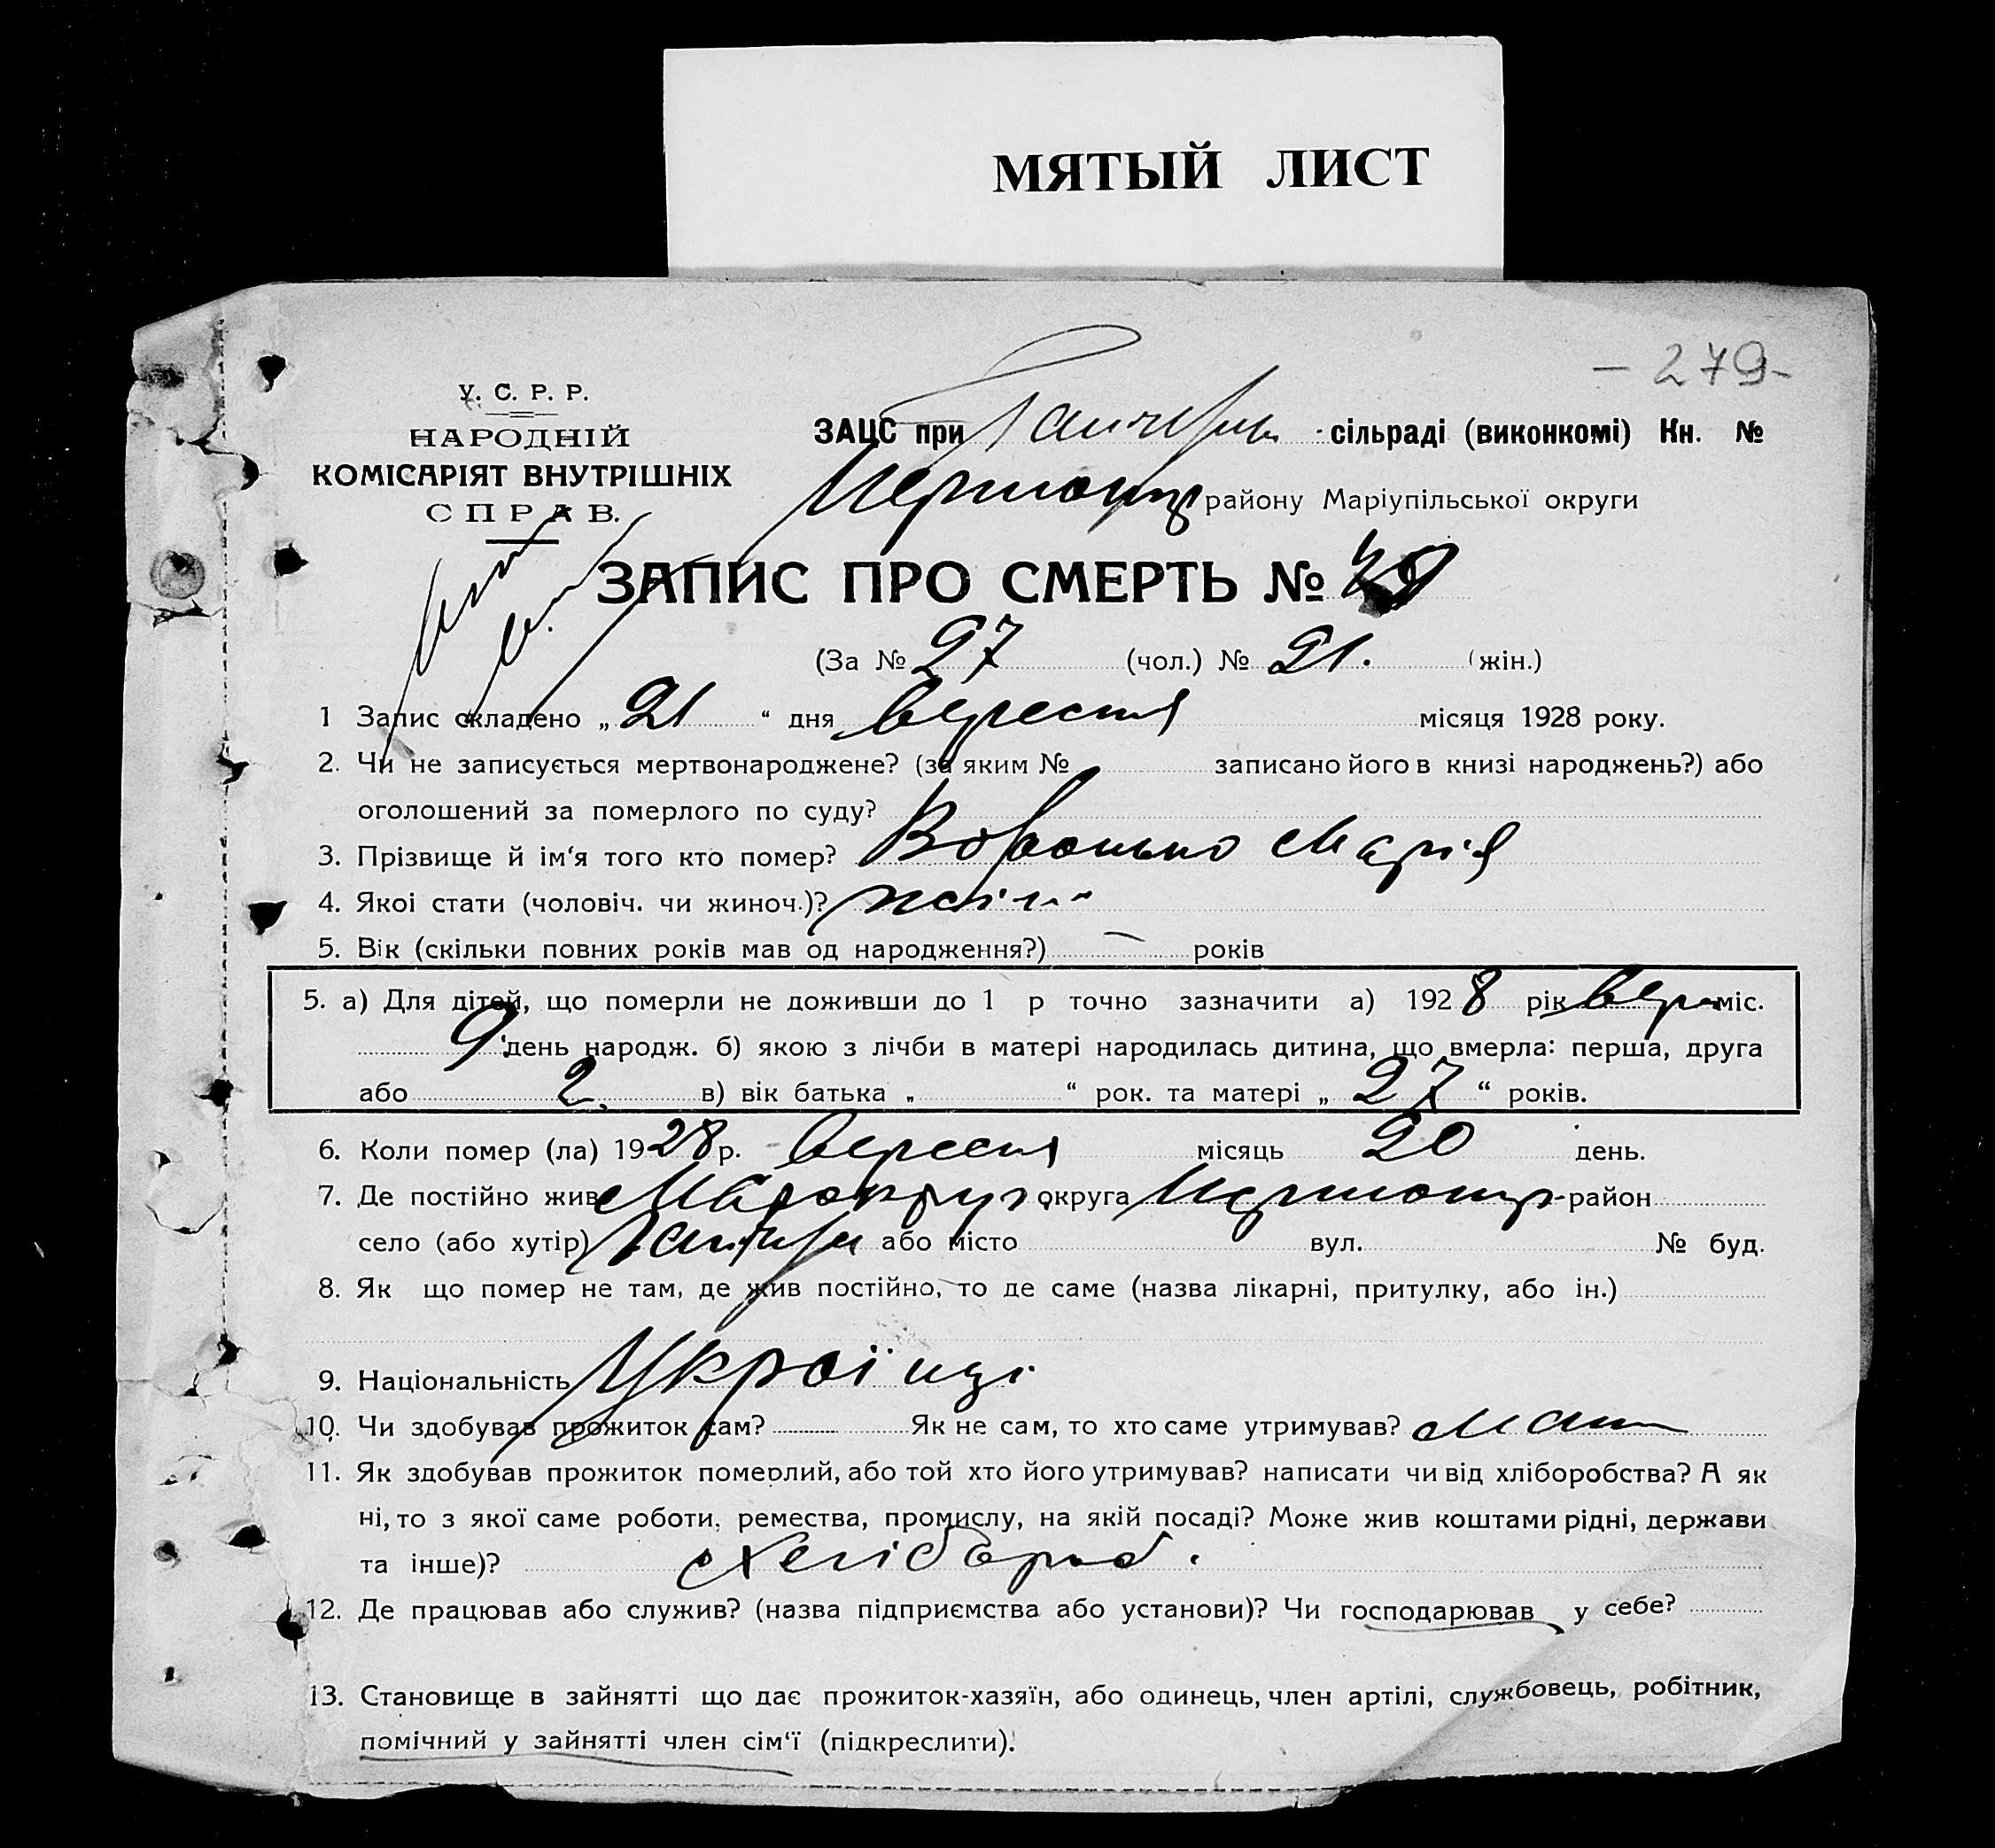 МЯТЫЙ ЛИСТ
– 279 –
У. С. Р. Р.
НАРОДНІЙ
КОМІСАРІЯТ ВНУТРІШНІХ
СПРАВ.
ЗАЦС при сільраді (виконкомі) Кн. №
району Маріупільської округи
ЗАПИС ПРО СМЕРТЬ №
(За № 27 (чол.) № 21. (жін.)
1 Запис складено „ 21 “ дня вересня місяця 1928 року.
2. Чи не записується мертвонароджене? (за яким № записано його в книзі народжень?) або
оголошений за померлого по суду?
3. Прізвище й ім‘я того кто помер? Марія
4. Якоі стати (чоловіч. чи жиноч.)?
5. Вік (скільки повних років мав од народження?) — років
5. а) Для дітей, що померли не доживши до 1 р точно зазначити а) 1928 рік вер міс.
9 день народж. б) якою з лічби в матері народилась дитина, що вмерла: перша, друга
або 2. в) вік батька „ “ рок. та матері „ 27 “ років.
6. Коли помер (ла) 1928 р. вересня місяць 20 день.
7. Де постійно жив округа район
село (або хутір) або місто вул. № буд.
8. Як що помер не там, де жив постійно, то де саме (назва лікарні, притулку, або ін.)
9. Національність
10. Чи здобував прожиток сам? Як не сам, то хто саме утримував? Мати
11. Як здобував прожиток померлий, або той хто його утримував? написати чи від хліборобства? А як
ні, то з якої саме роботи, ремества, промислу, на якій посаді? Може жив коштами рідні, держави
та інше)? Хлібороб.
12. Де працював або служив? (назва підприємства або установи)? Чи господарював у себе?
13. Становище в зайнятті що дає прожиток-хазяїн, або одинець, член артілі, службовець, робітник,
помічний у зайнятті член сім‘ї (підкреслити).